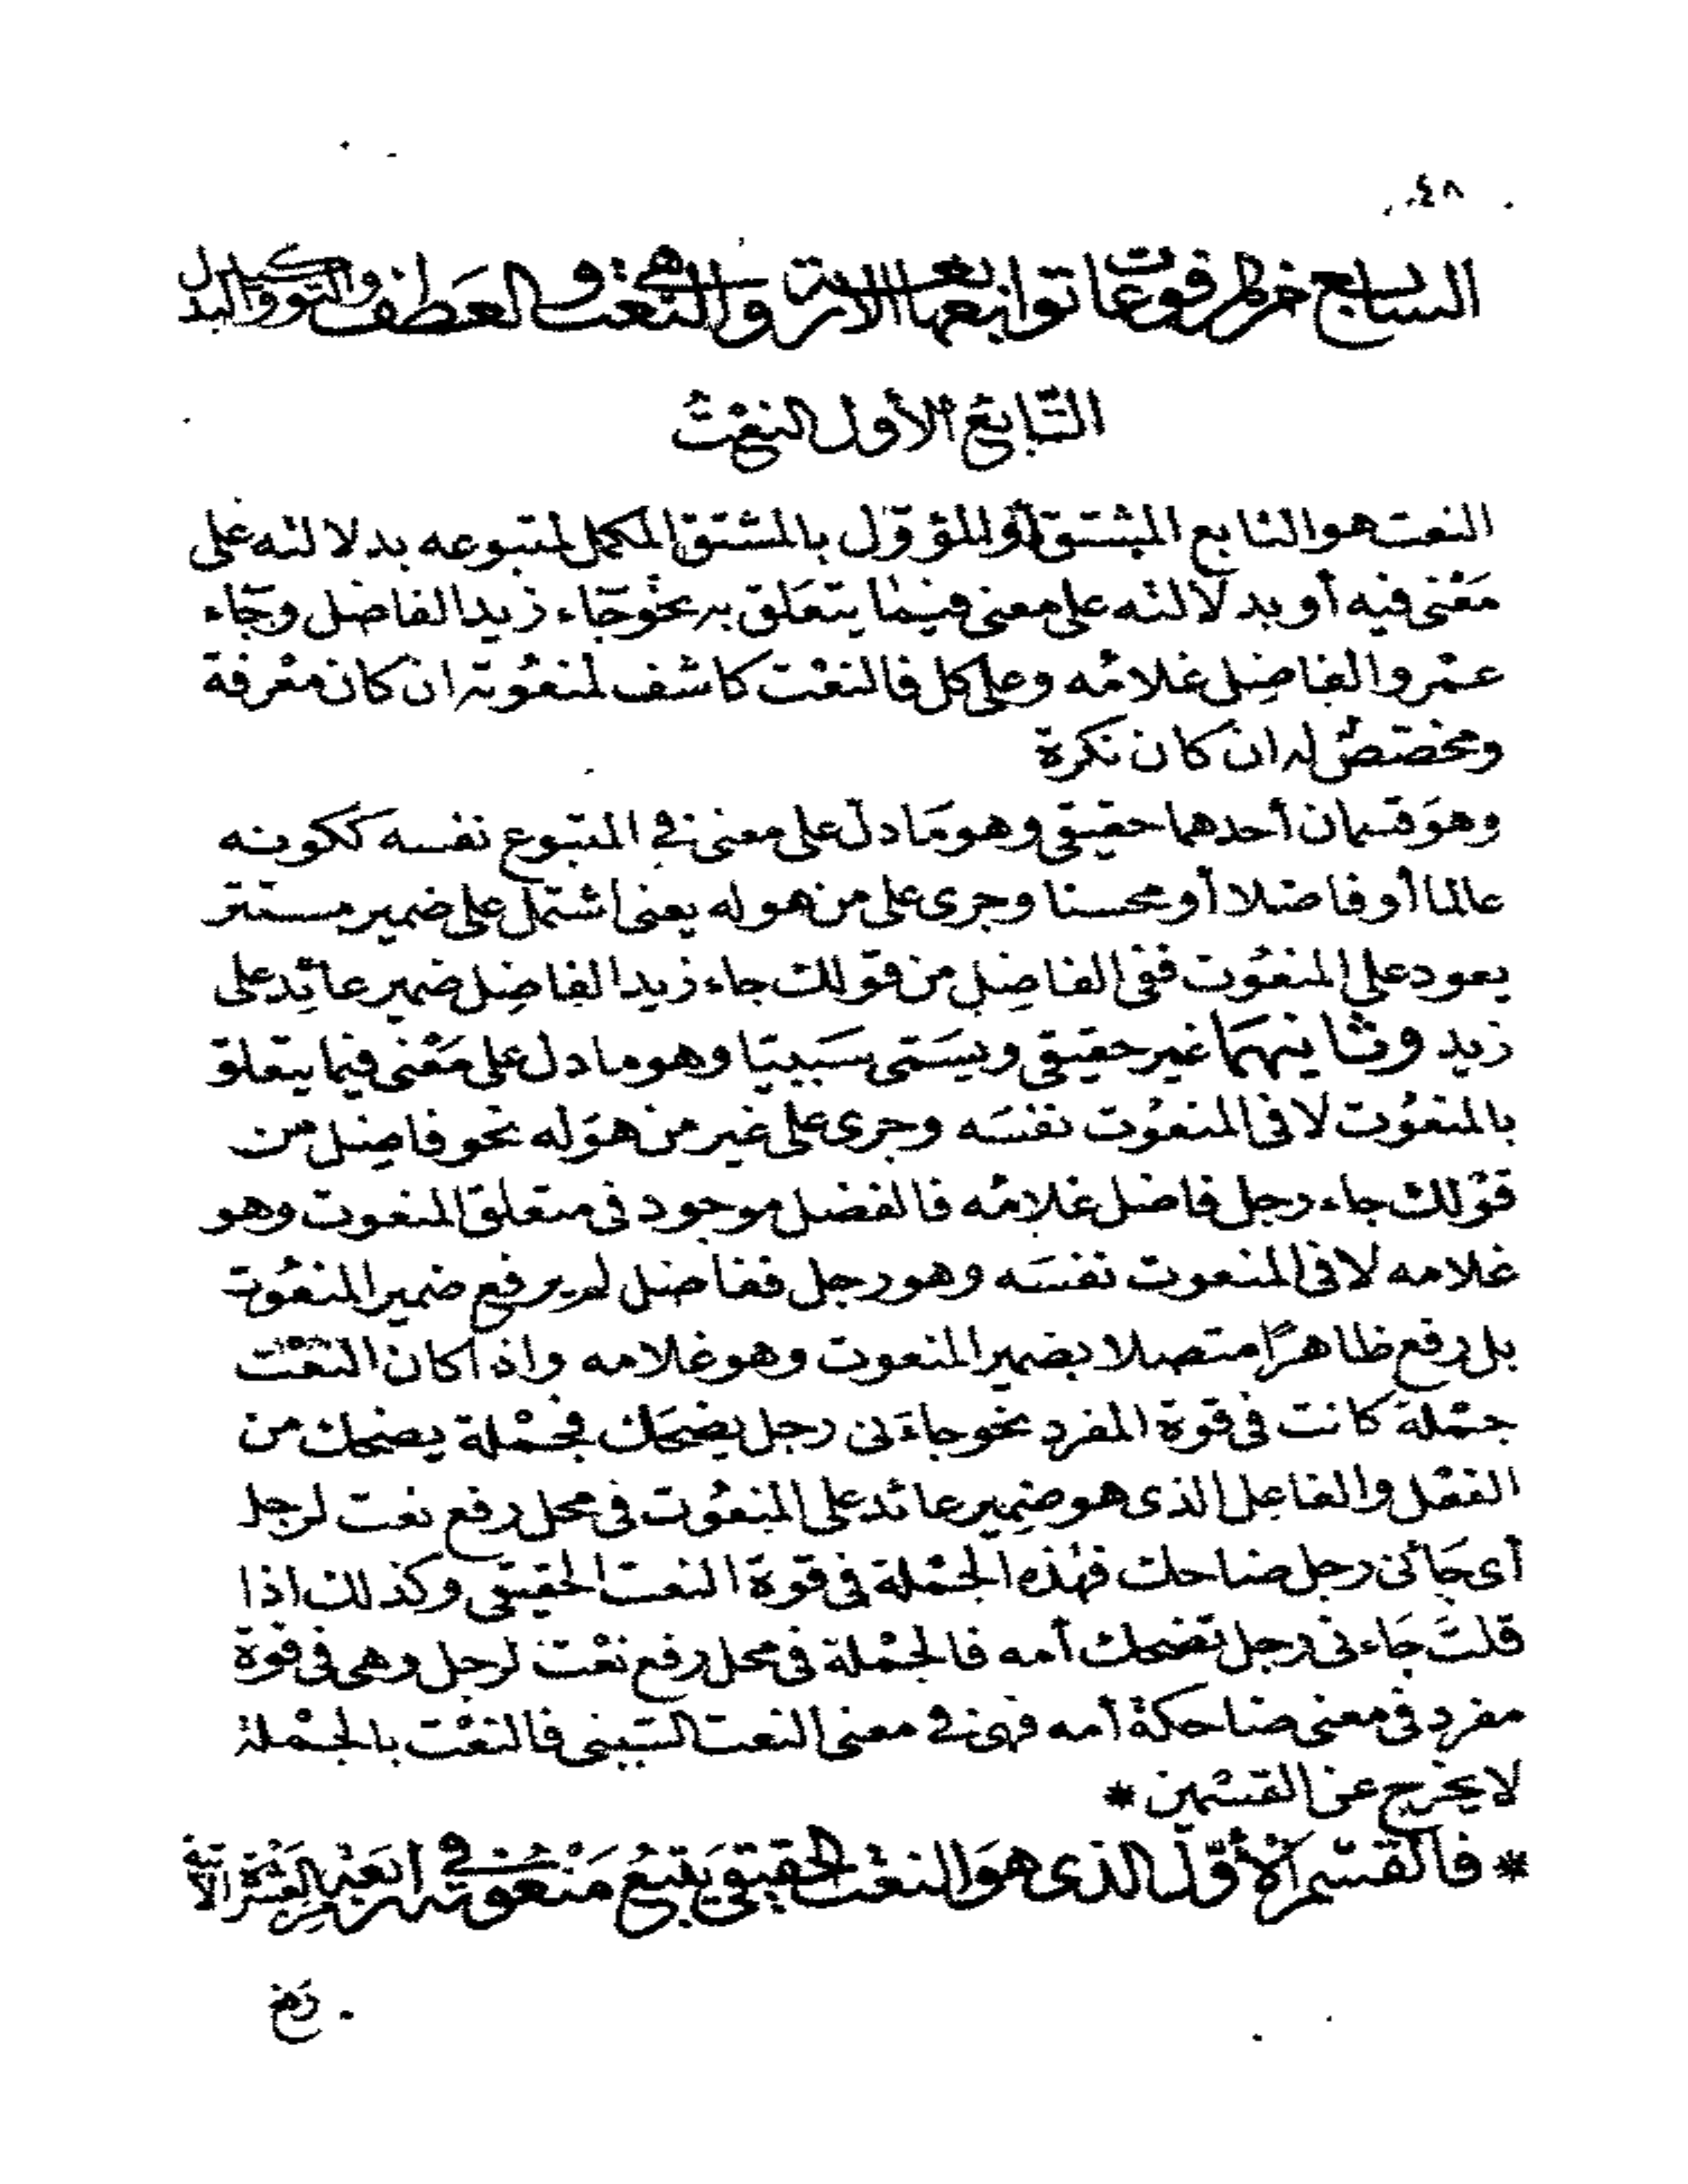 ٤٨
السابع من المرفوعات توابعها الاربعة وهى النعت والعطف والتوكيد والبدل
التَّابعُ الأول النعْتُ
النعت هو التابع المشتق أو المؤوّل بالمشتق المكمل لمتبوعه بدلالته على
مَعْنى فيه أو بدلالته على معنى فيمَا يتعَلق به نحْو جَاء زيد الفاضل وجَاء
عمْرو الفاضِل غلامُه وعلى كل فالنعْت كاشف لمنعُوته ان كان معْرفة
ومخصّصٌ له ان كان نكرة
وهوَ قسمان أحدهما حقيقى وهو مَا دل على معنى فى المتبوع نفسه ككونه
عالما أو فاضلا أو محسنا وجرى على من هو له يعنى اشتمل على ضمير مستتر
يعود على المنعُوت ففى الفاضِل من قولك جاء زيد الفاضِل ضمير عائِد على
زيد وثانيهمَا غير حقيقى ويسَمى سَببيّا وهو ما دل على مَعْنى فيما يتعلق
بالمنعُوت لا فى المنعُوت نفسَه وجرى على غير من هوَ له نحو فاضِل من
قوْلك جاء رجل فاضل غلامُه فالفضل موجود فى متعلق المنعوت وهو
غلامه لا فى المنعوت نفسَه وهو رجل ففاضل لم يرفع ضمير المنعُوت
بل رفع ظاهرًا متصلا بضمير المنعوت وهو غلامه واذا كان النعْت
جمْلة كانت فى قوة المفرد نحو جاءَنى رجل يضحَك فجمْلة يضحك من
الفعْل والفاعِل الذى هو ضمِير عائد على المنعُوت فى محل رفع نعت لرجل
أى جَائنى رجل ضاحك فهٰذه الجمْلة فى قوة النعت الحقيقى وكذلك اذا
قلتَ جَاءنى رجل تضحك أمه فالجمْلة فى محل رفع نعْت لرجل وهى فى قوة
مفرد فى معنى ضاحكة أمه فهى فى معنى النعت السّببى فالنعْت بالجمْلة
لا يخرج عن القسْمين *
* فالقسْم الأوّل الذى هوَ النعْت الحقيقى يَتبعُ مَنْعُوتَه فى اربَعَة من العشْرة الآتية